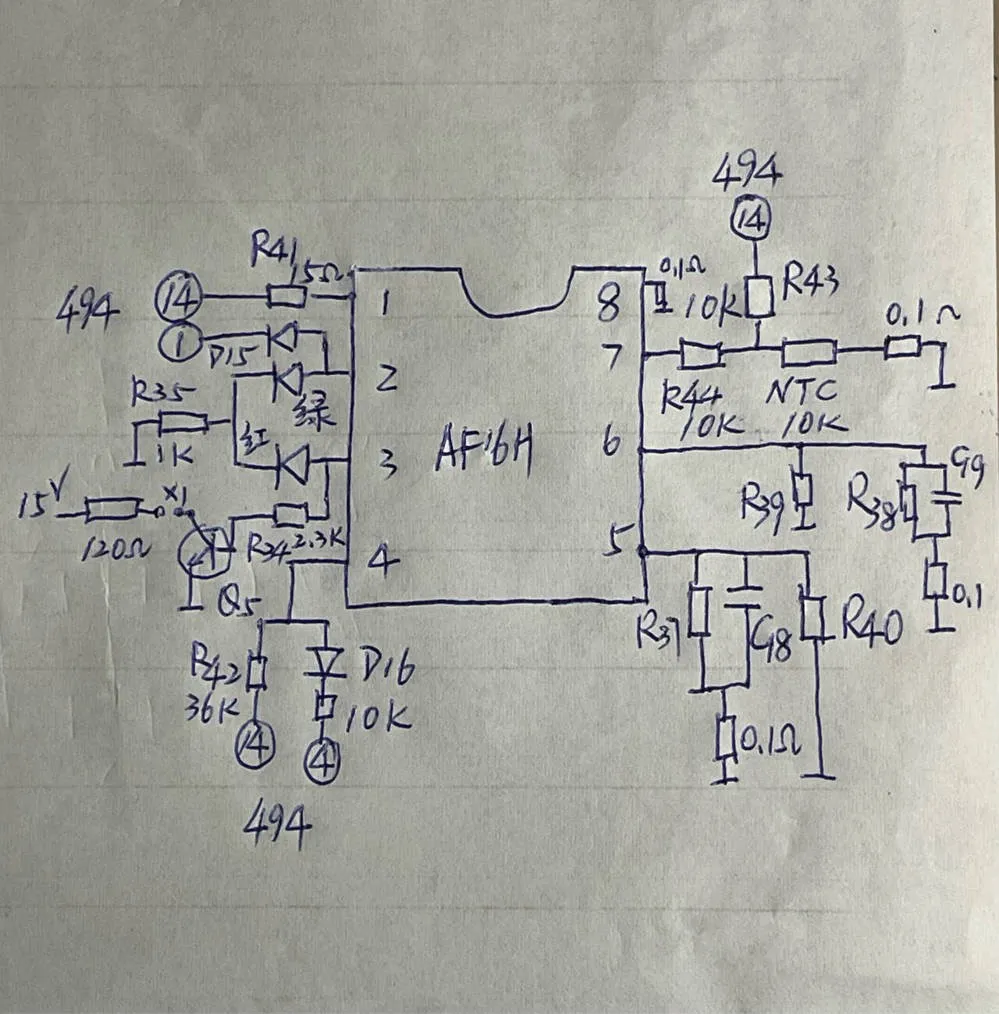 494
14
R41
15Ω
494
14
1
D15
1
2
3
4
8
7
6
5
AF16H
0.1Ω
10K
R43
0.1Ω
R44
10K
NTC
10K
R35
1K
绿
红
15V
120Ω
X1
R34
2.3K
Q5
R39
R38
C9
0.1
R42
36K
14
D16
10K
4
494
R37
C8
R40
0.1Ω